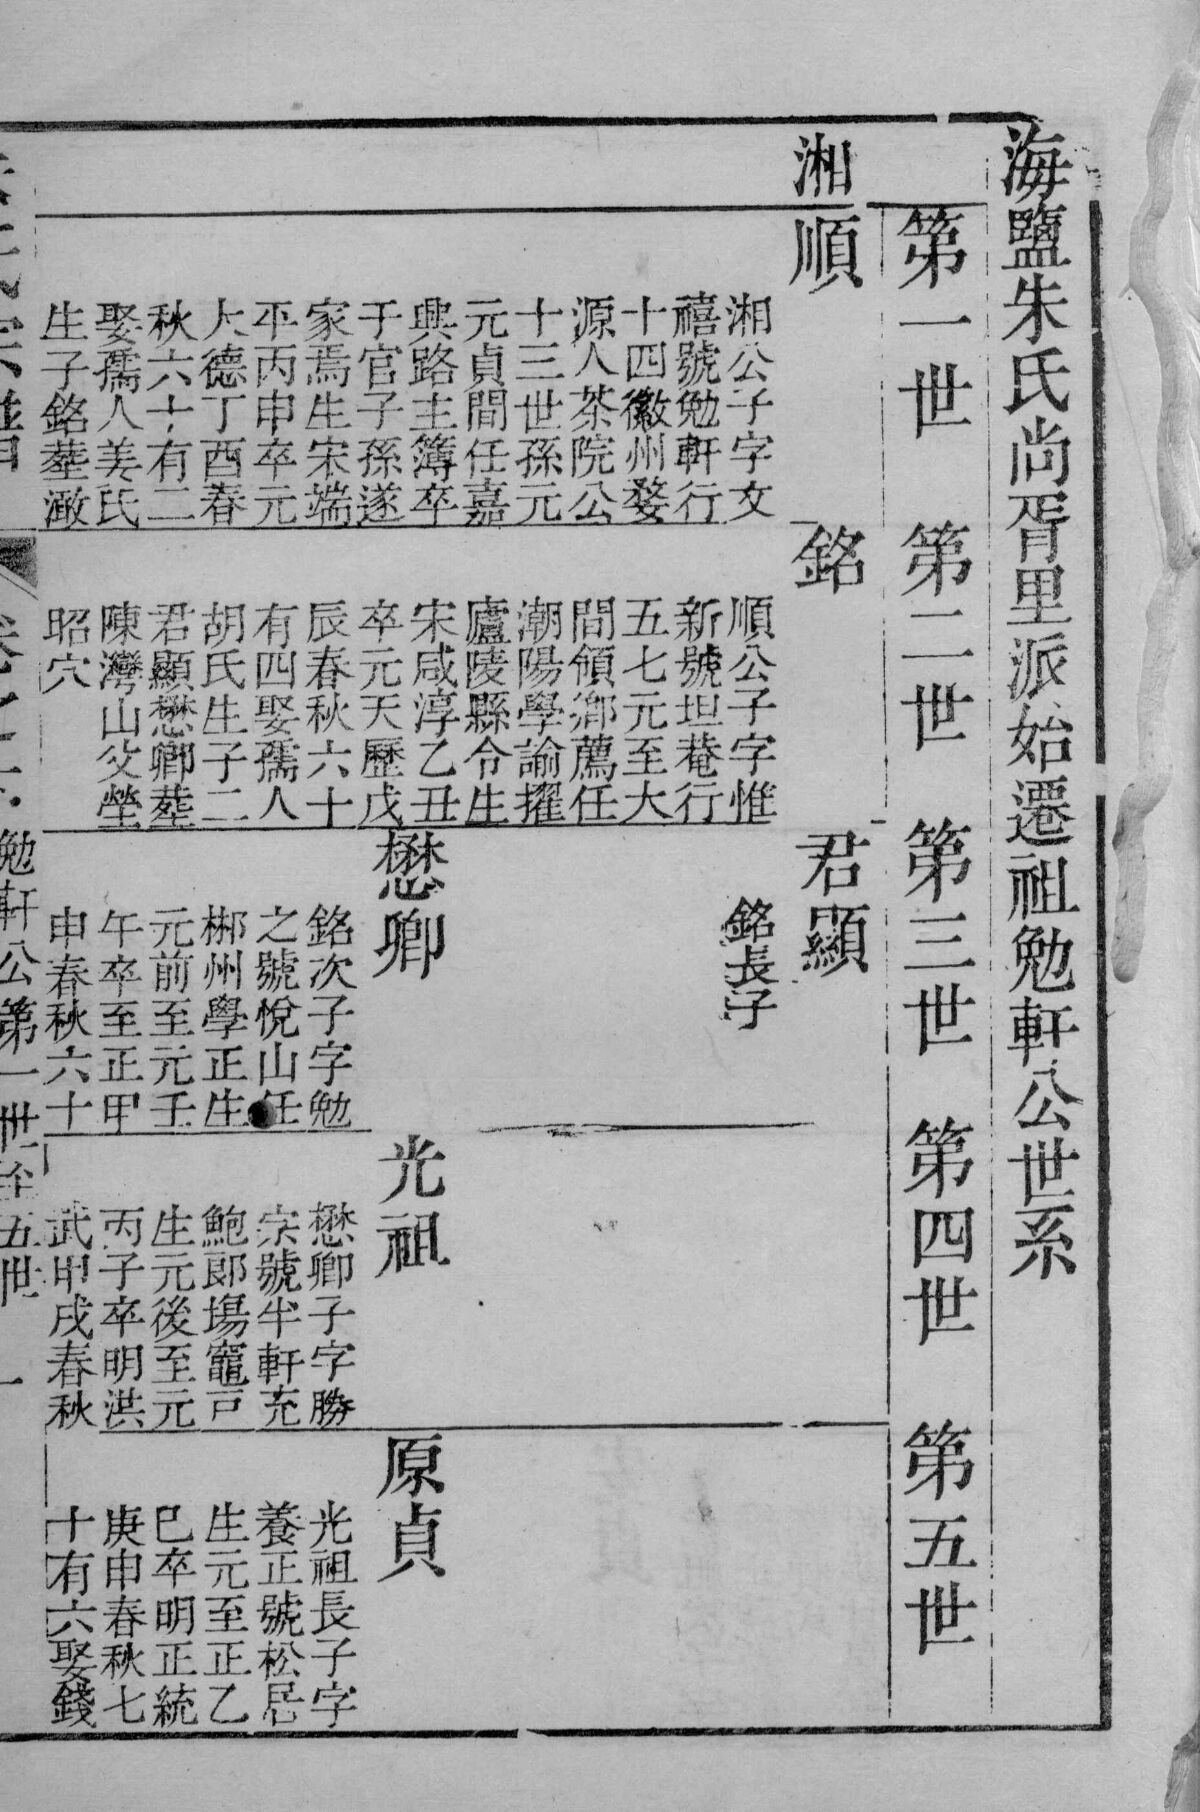 海鹽朱氏尚胥里派始遷祖勉軒公世系
第一世
第二世
第三世
第四世
第五世
湘
順
湘公子字文
禧號勉軒行
十四徽州婺
源人茶院公
十三世孫元
元貞間任嘉
興路主簿卒
于官子孫遂
家焉生宋端
平丙申卒元
大德丁酉春
秋六十有二
娶孺人姜氏
生子銘塟澉
銘
順公子字惟
新號坦菴行
五七元至大
間領鄉薦任
潮陽學諭擢
廬陵縣令生
宋咸淳乙丑
卒元天歷戊
辰春秋六十
有四娶孺人
胡氏生子二
君顯懋卿塟
陳灣山父塋
昭穴
君顯
銘長子
懋卿
銘次子字勉
之號悅山任
郴州學正生
元前至元壬
午卒至正甲
申春秋六十
光祖
懋卿子字勝
宗號半軒充
鮑郎塲竈戸
生元後至元
丙子卒明洪
武甲戌春秋
原貞
光祖長子字
養正號松居
生元至正乙
巳卒明正統
庚申春秋七
十有六娶錢
勉軒公第一世至五世 一